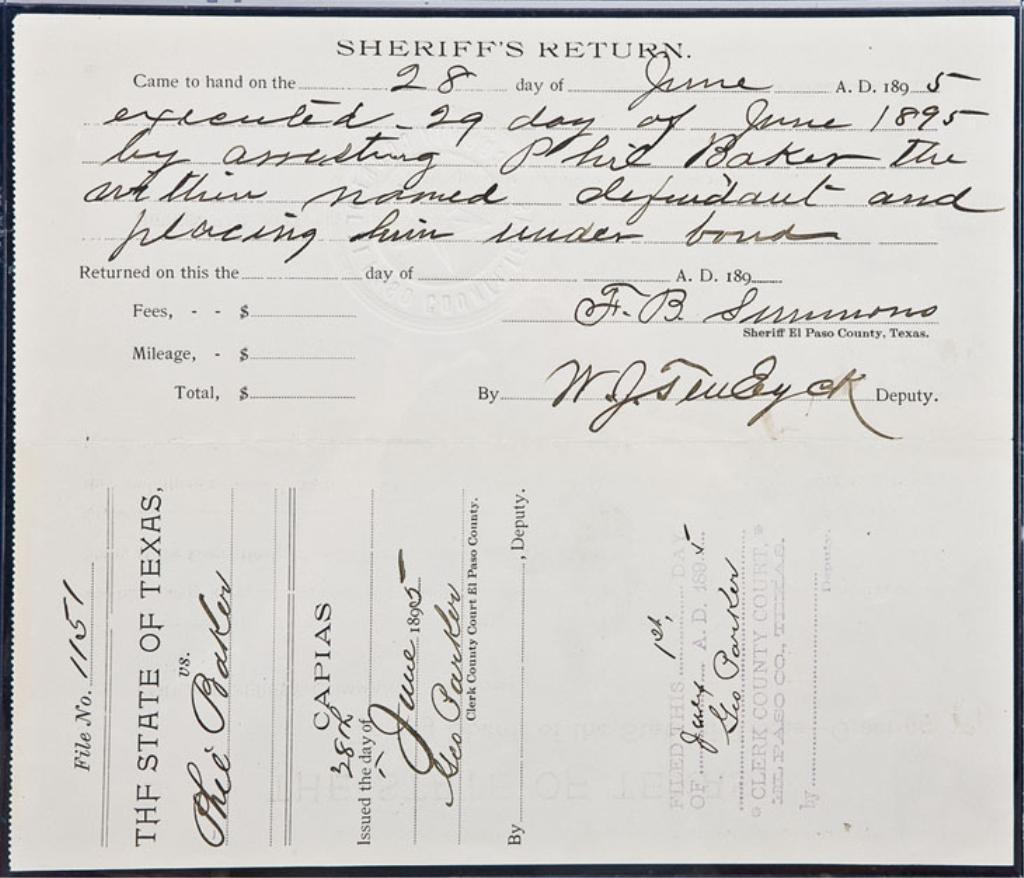 SHERIFF'S RETURN.
Came to hand on the 28 day of June A. D. 1895
executed 29 day of June 1895
by arresting Phil Baker the
within named defendant and
placing him under bond
Returned on this the day of A. D. 189
Fees, - - $
F. B. Simmons
Sheriff El Paso County, Texas.
Mileage, - $
Total, $
By W. J. TenEyck Deputy.
File No. 1151
THE STATE OF TEXAS,
vs.
Phil Baker
CAPIAS
28th
Issued the day of
June 1895
Geo Parker
Clerk County Court El Paso County.
By , Deputy.
FILED THIS 1st, DAY
OF A. D. 1895
Geo Parker
CLERK COUNTY COURT,
EL PASO CO., TEXAS.
by Deputy.